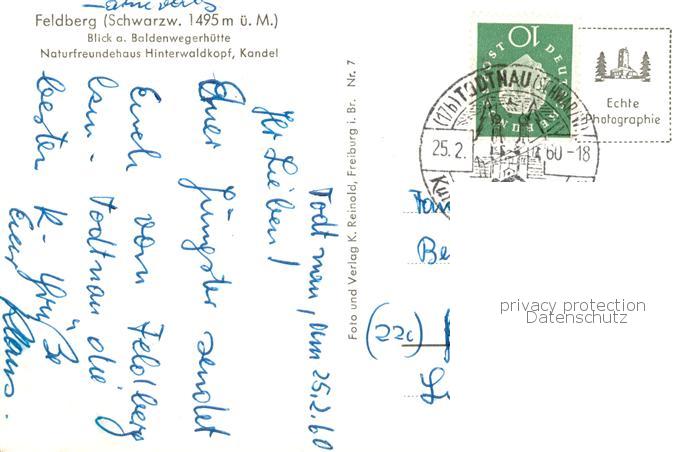 Feldberg (Schwarzw. 1495 m ü. M.)
Blick a. Baldenwegerhütte
Naturfreundehaus Hinterwaldkopf, Kandel
Todtnau, am 25.2.60
Ihr Lieben!
Euer Jüngster sendet
Euch vom Feldberg
bzw. Todtnau die
besten K-Grüße
Euer
Klaus.
Foto und Verlag K. Reinold, Freiburg i. Br. Nr. 7
10
POST DEUTSCHE BUNDES
(17b) TODTNAU (SCHWARZW)
25.2.60-18
Echte
Photographie
Fam
Be
(22c)
privacy protection
Datenschutz